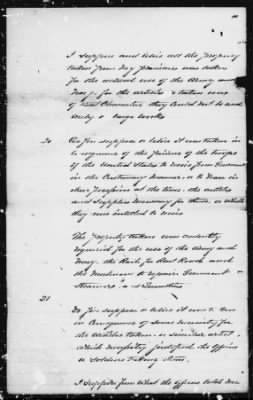 I suppose and believe all the property
taken from my premises was taken
for the actual use of the Army and
Navy, for the articles taken were
of that character they could not be used
only
20 Do you suppose or believe it was taken in
consequence of the failure of the troops
of the United States to receive from Government
in the Customary manner, or to have in
their possession at the time, the articles
and supplies necessary for them, or which
they were entitled to receive
The property taken was evidently
required for the use of the Army and
Navy, the Rails for Rail Roads and
the Machinery to repair Government
Steamers
21 Do you suppose or believe it was taken
in Consequence of some necessity for
the articles taken or similar articles
which necessity justified the Officers
or Soldiers taking them
I suppose from what the officers told me